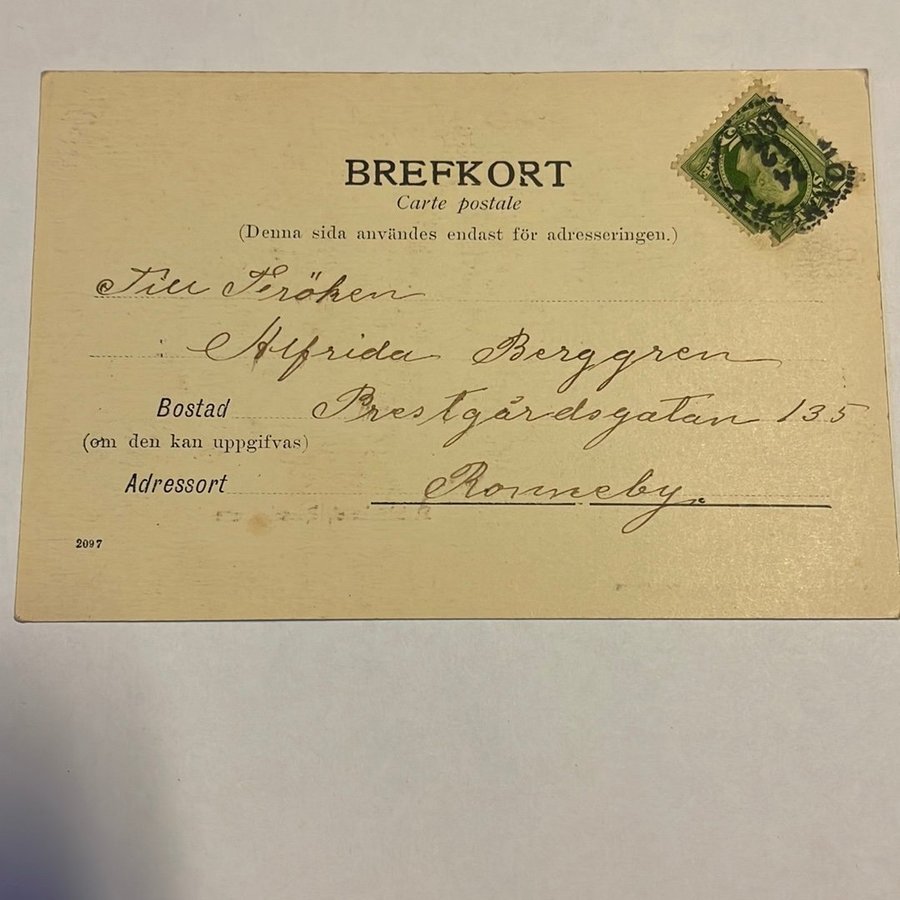 BREFKORT
Carte postale
(Denna sida användes endast för adresseringen.)
Till Fröken
Alfrida Berggren
Bostad Prestgårdsgatan 135
(om den kan uppgifvas)
Adressort Ronneby.
2097